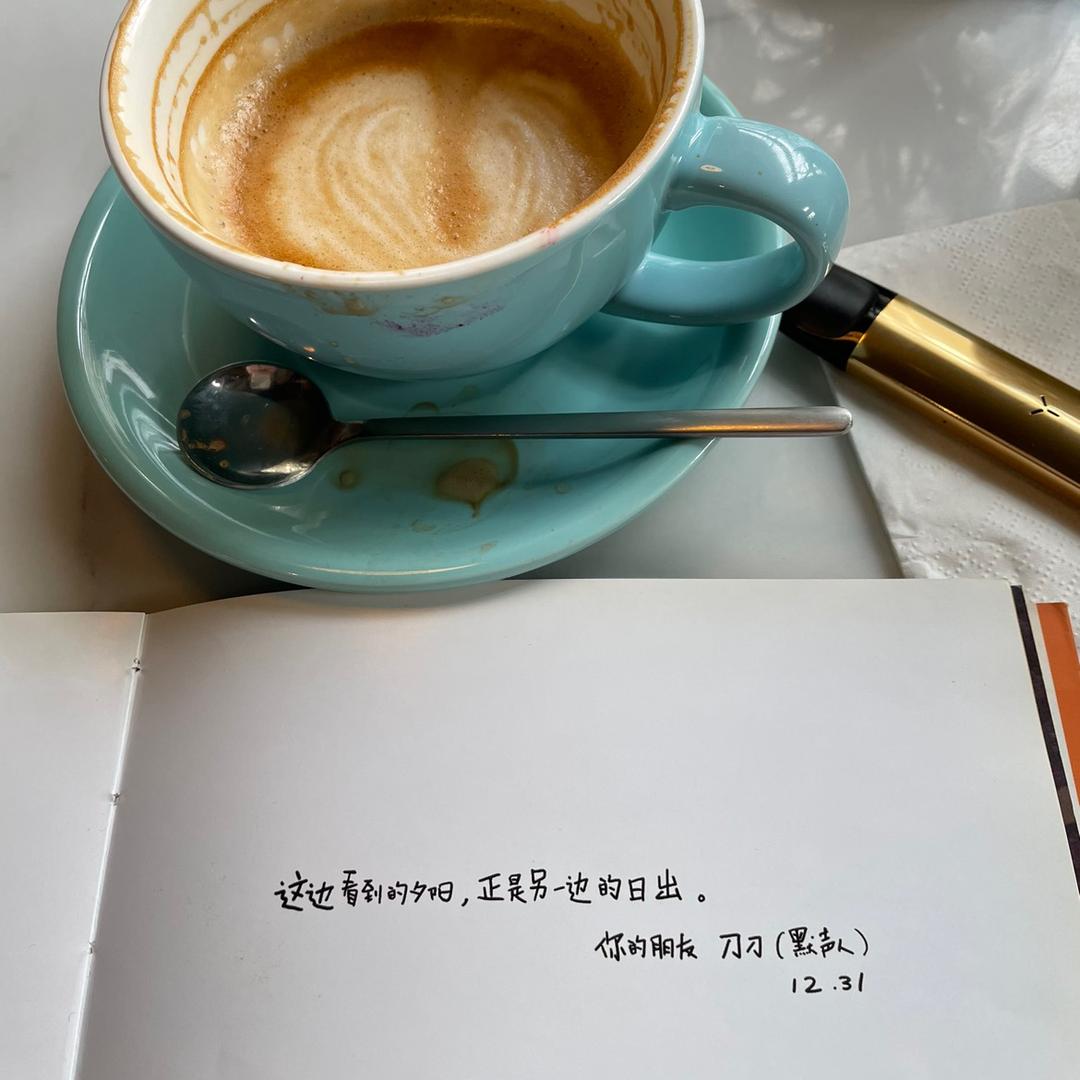 这边看到的夕阳,正是另一边的日出。
你的朋友 刀刀(默清人)
12.31